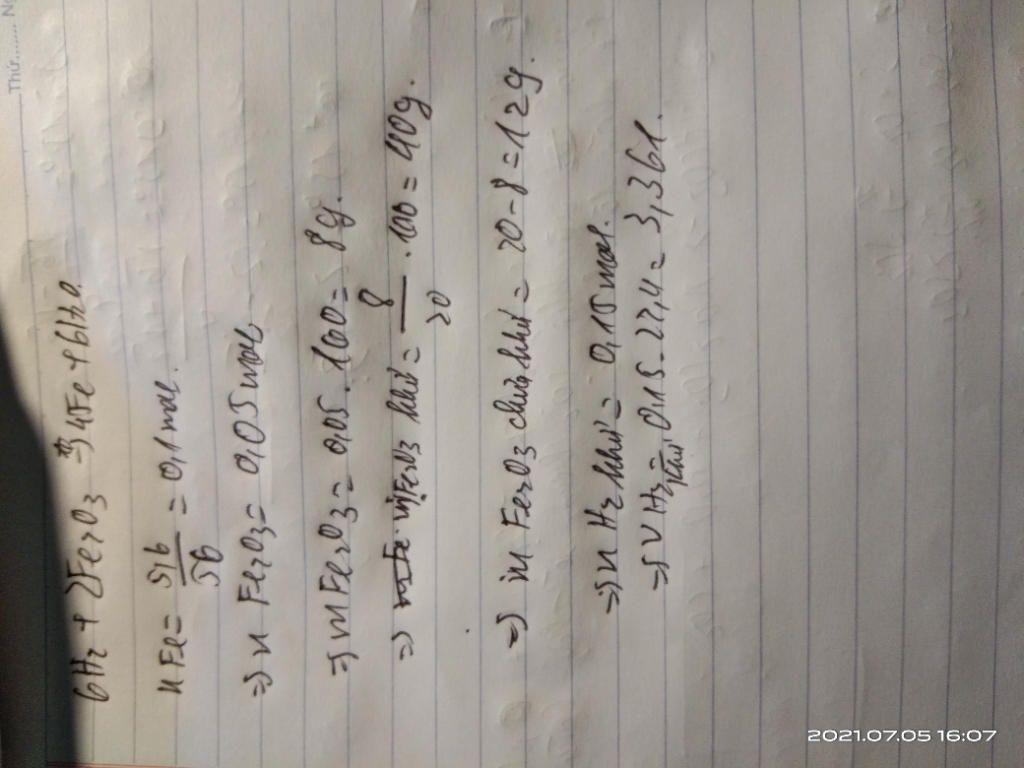 Thứ........ Ng
6H2 + 2Fe2O3 => 4Fe + 6H2O.
nFe = 5,6/56 = 0,1 mol.
=> n Fe2O3 = 0,05 mol
=> mFe2O3 = 0,05 . 160 = 8g.
=> mFe2O3 khử = 8/20 . 100 = 40g.
=> m Fe2O3 chưa khử = 20 - 8 = 12g.
=> n H2 khử = 0,15 mol.
=> V H2 khử = 0,15 . 22,4 = 3,36l.
2021.07.05 16:07